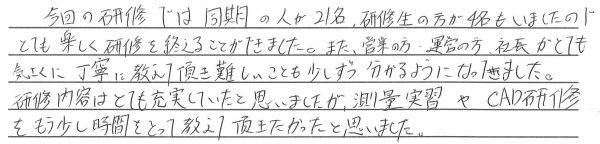 今回の研修では同期の人が21名、研修生の方が4名もいましたので
とても楽しく研修を終えることができました。また、営業の方、運営の方、社長がとても
気さくに丁寧に教えて頂き難しいことも少しずつ分かるようになってきました。
研修内容はとても充実していたと思いましたが、測量実習やCAD研修
をもう少し時間をとって教えて頂きたかったと思いました。